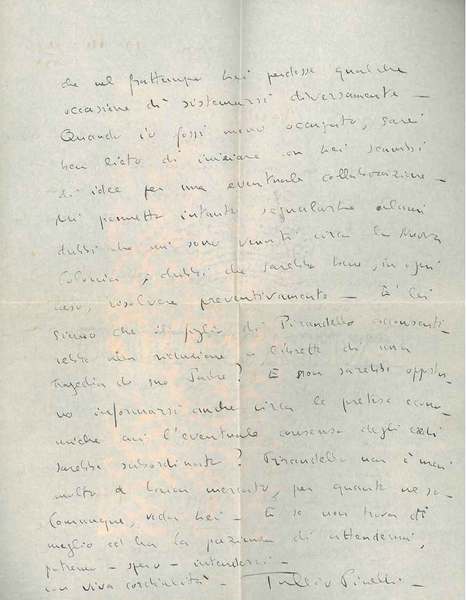 che nel frattempo Lei perdesse qualche
occasione di sistemarsi diversamente -
Quando io fossi meno occupato, sarei
ben lieto di iniziare con Lei scambi
di idee per una eventuale collaborazione -
Mi permetta intanto segnalarLe alcuni
dubbi che mi sono venuti circa la Nuova
Colonia; dubbi che sarebbe bene, in ogni
caso, risolvere preventivamente - È Lei
sicuro che il figlio di Pirandello acconsenti-
rebbe alla riduzione a libretto di una
tragedia di suo Padre? E non sarebbe opportu-
no informarsi anche circa le pretese econo-
miche cui l'eventuale consenso degli eredi
sarebbe subordinato? Pirandello non è mai
molto a buon mercato, per quanto ne so.
Comunque, veda Lei - E se non trova di
meglio ed ha la pazienza di attendermi,
potremo - spero - intenderci -
con viva cordialità - Tullio Pinelli -